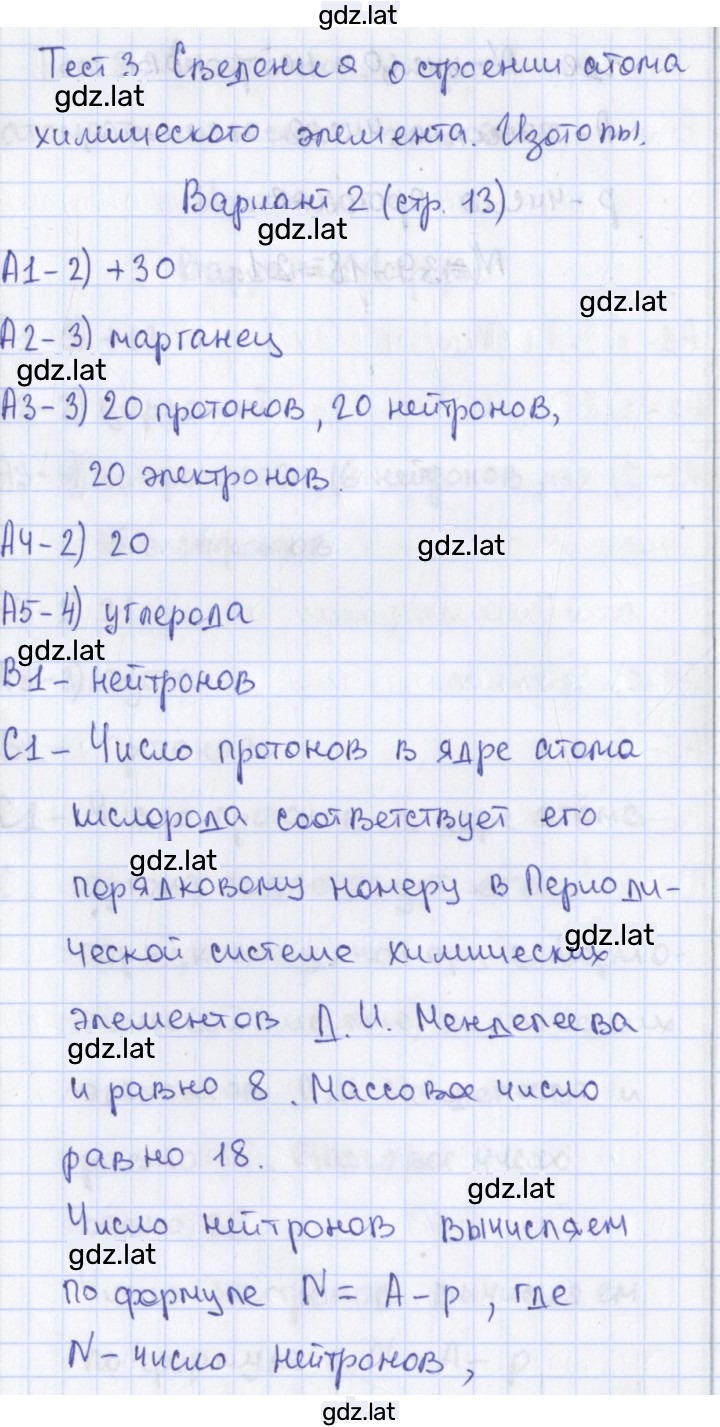 gdz.lat
Тест 3. Сведения о строении атома
gdz.lat
химического элемента. Изотопы.
Вариант 2 (стр. 13)
gdz.lat
А1 - 2) +30
gdz.lat
А2 - 3) марганец
gdz.lat
А3 - 3) 20 протонов, 20 нейтронов,
20 электронов.
А4 - 2) 20
gdz.lat
А5 - 4) углерода
gdz.lat
В1 - нейтронов
С1 - Число протонов в ядре атома
кислорода соответствует его
gdz.lat
порядковому номеру в Периоди-
gdz.lat
ческой системе химических
элементов Д.И. Менделеева
gdz.lat
и равно 8. Массовое число
равно 18.
gdz.lat
Число нейтронов вычисляем
gdz.lat
по формуле N = A - p, где
N - число нейтронов,
gdz.lat